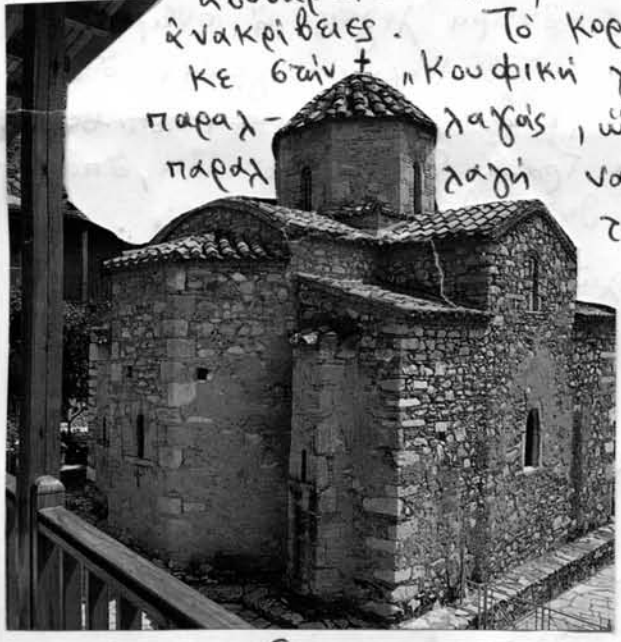 ἀνακρίβειες. Τό κορ
κε στήν „Κουφική γ
παραλ- λαγάς, ὡ
παραλ λαγή να
τ